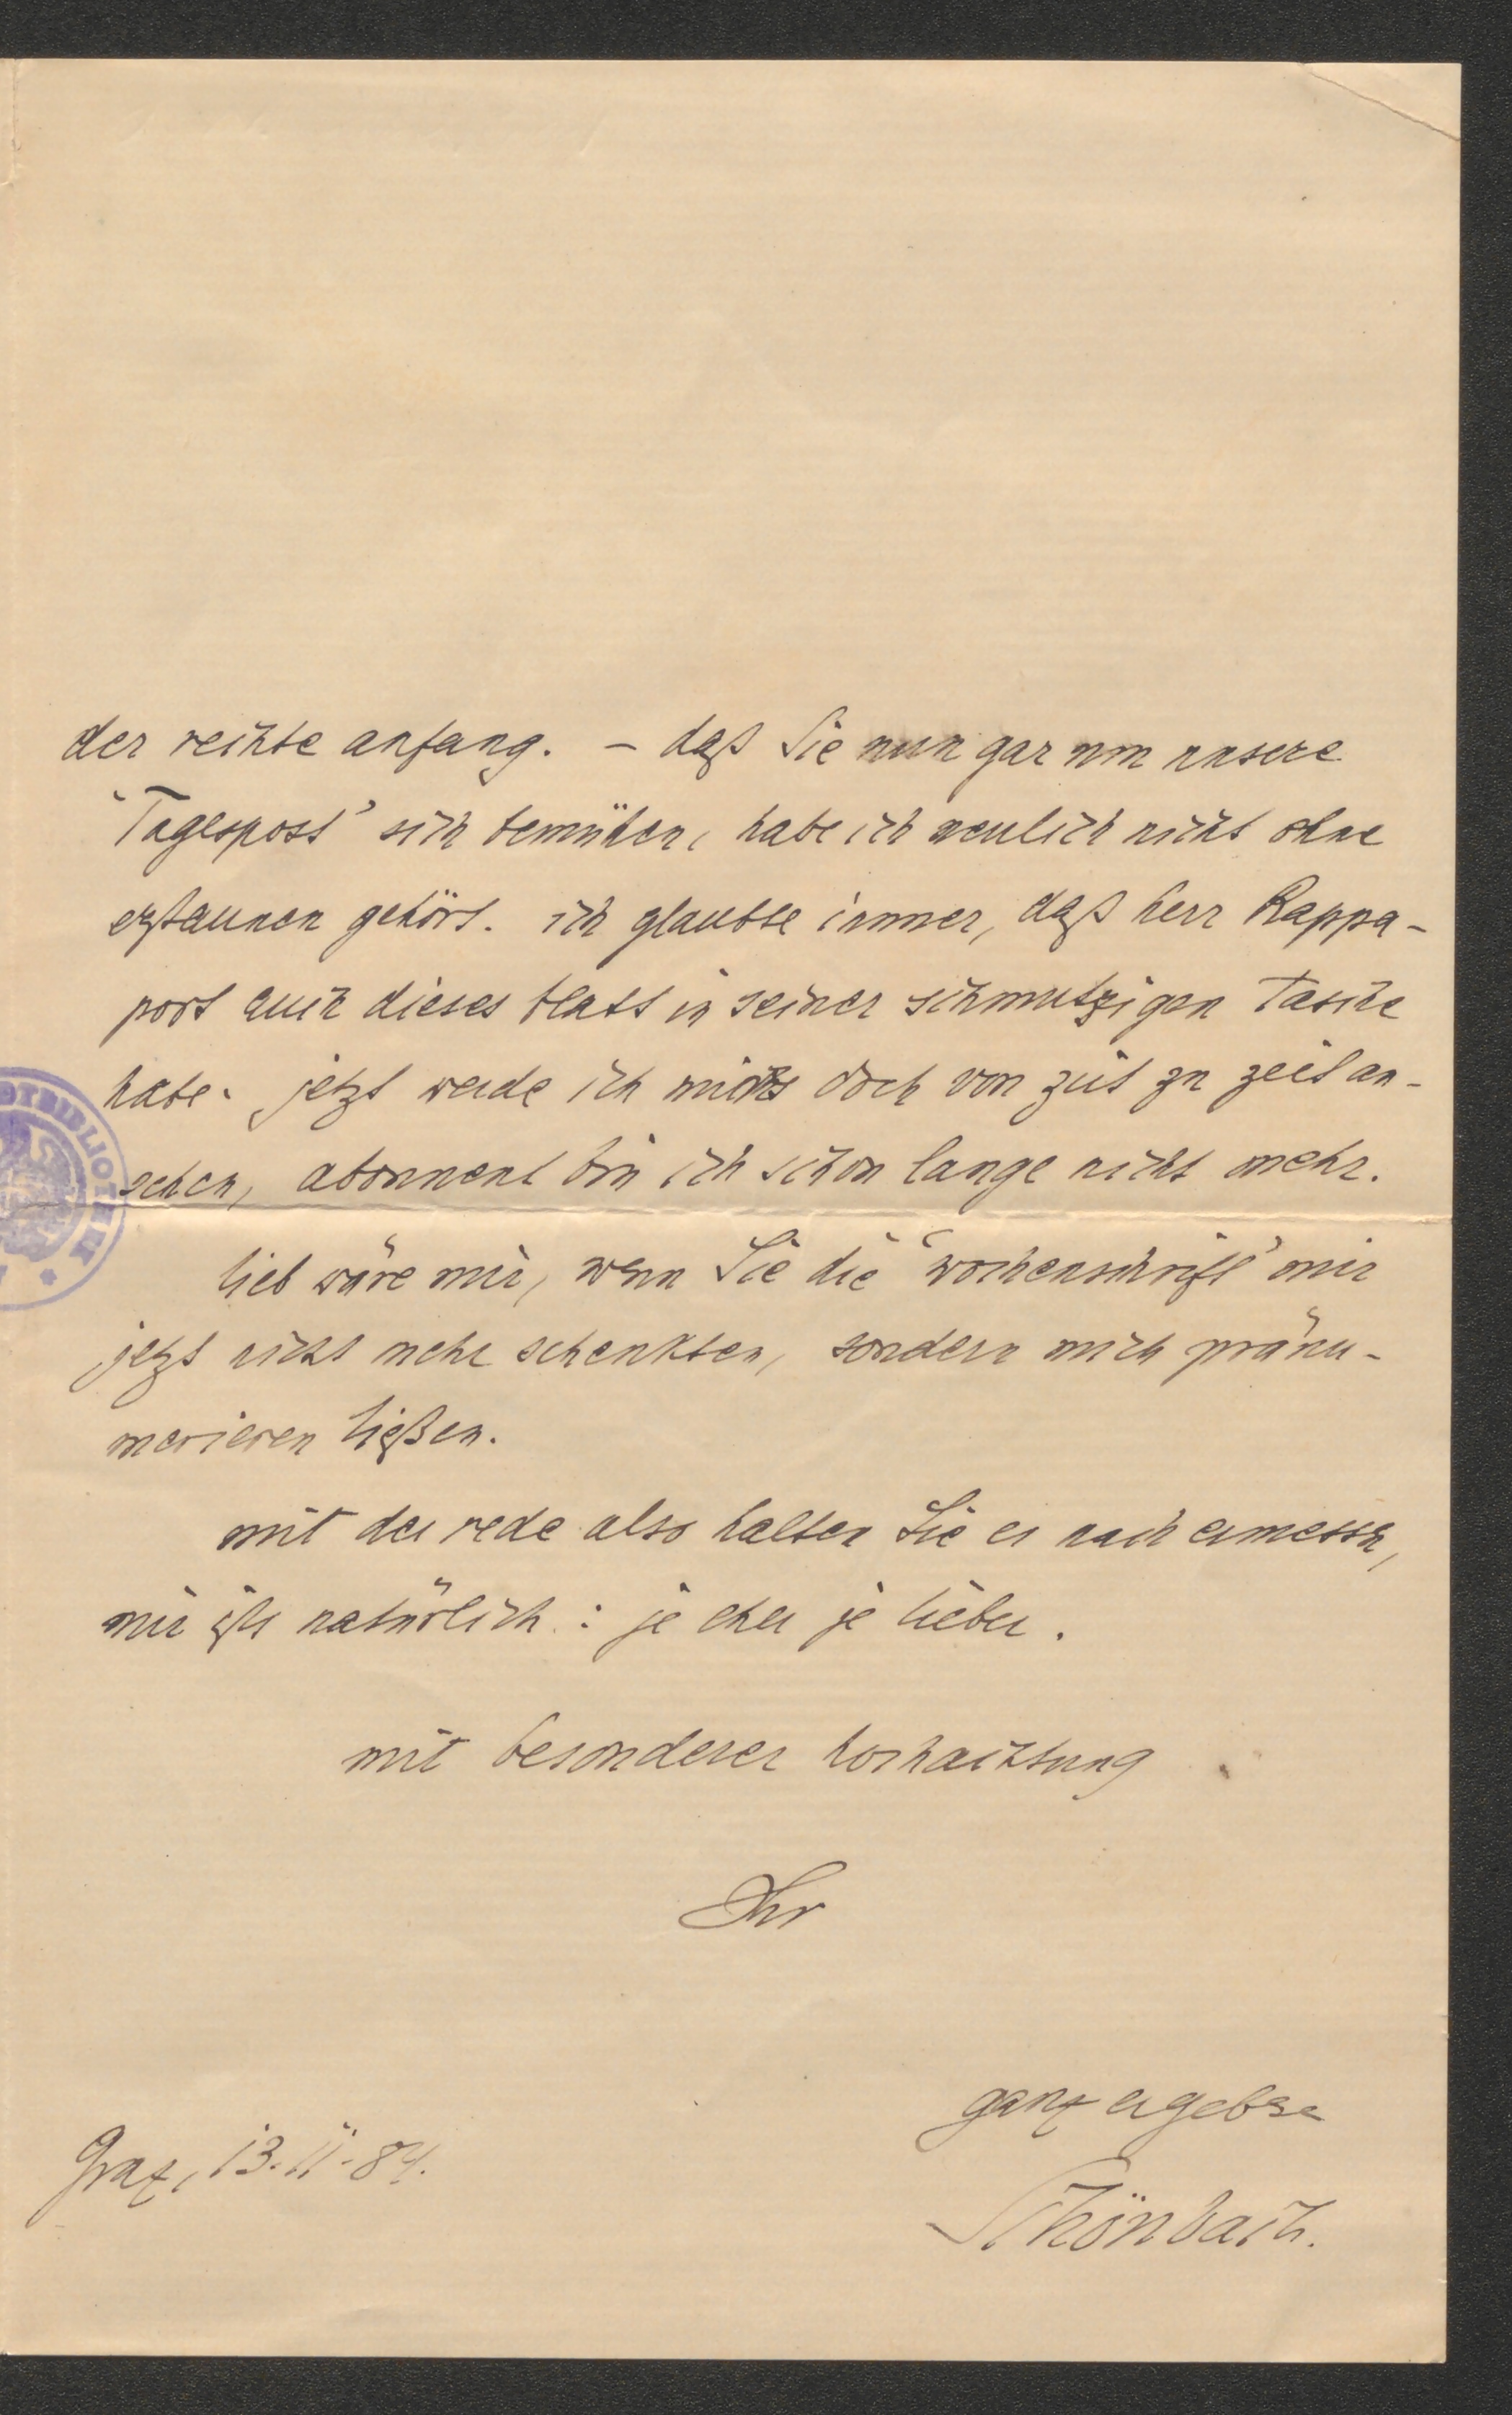 der rechte anfang. – daß Sie nun gar um unsere
'Tagespost' sich bemühen, habe ich neulich nicht ohne
erstaunen gehört. ich glaubte immer, daß herr Rappa-
port auch dieses blatt in seiner schmutzigen Tasche
habe. jetzt werde ich mirs doch von zeit zu zeit an-
sehen, abonnent bin ich schon lange nicht mehr.
lieb wäre mir, wenn Sie die 'wochenschrift' mir
jetzt nicht mehr schenkten, sondern mich pränu-
merieren ließen.
mit der rede also halten Sie es nach ermessen,
mir ists natürlich: je eher je lieber.
mit besonderer hochachtung
Ihr
ganz ergebne
Graz, 13.11.84.
Schönbach.